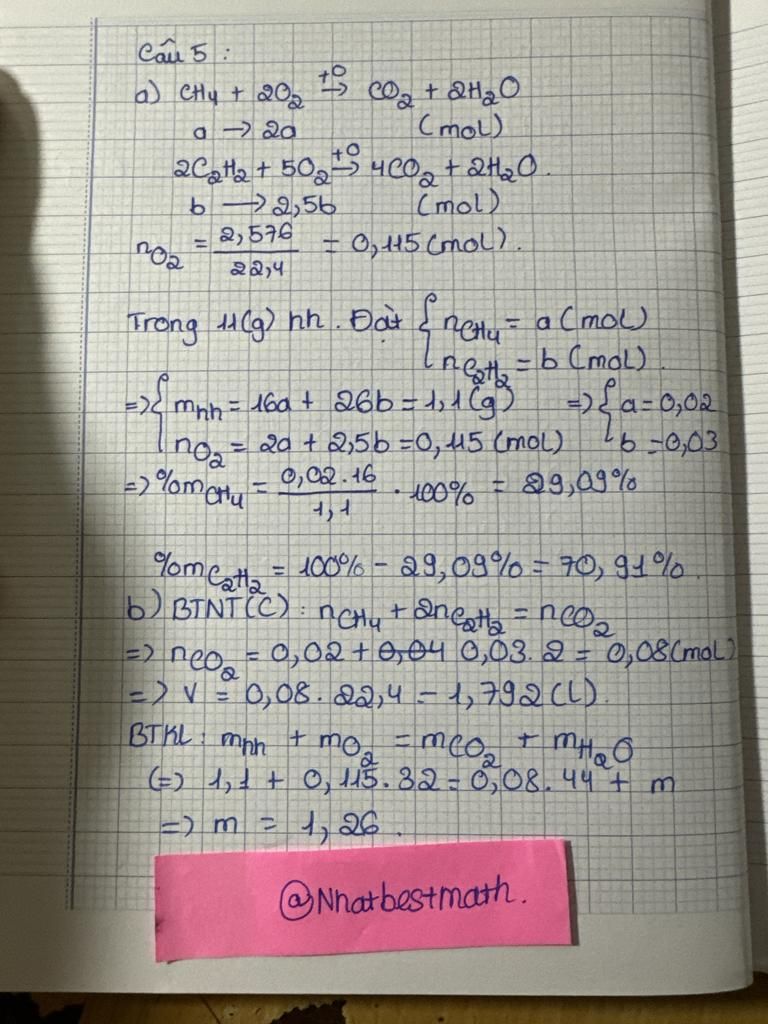 Câu 5 :
a) CH4 + 2O2 +0→ CO2 + 2H2O
a → 2a (mol)
2C2H2 + 5O2 +0→ 4CO2 + 2H2O.
b → 2,5b (mol)
nO2 = 2,576/22,4 = 0,115 (mol).
Trong 11(g) hh. Đặt { nCH4 = a (mol)
nC2H2 = b (mol)
=> { mhh = 16a + 26b = 1,1 (g) => { a = 0,02
nO2 = 2a + 2,5b = 0,115 (mol) b = 0,03
=> %mCH4 = 0,02.16/1,1 . 100% = 29,09%
%mC2H2 = 100% - 29,09% = 70,91%.
b) BTNT(C) : nCH4 + 2nC2H2 = nCO2
=> nCO2 = 0,02 + 0,04 0,03.2 = 0,08 (mol)
=> V = 0,08. 22,4 = 1,792 (L).
BTKL : mhh + mO2 = mCO2 + mH2O
(=) 1,1 + 0,115.32 = 0,08.44 + m
=> m = 1,26.
@Nhatbestmath.